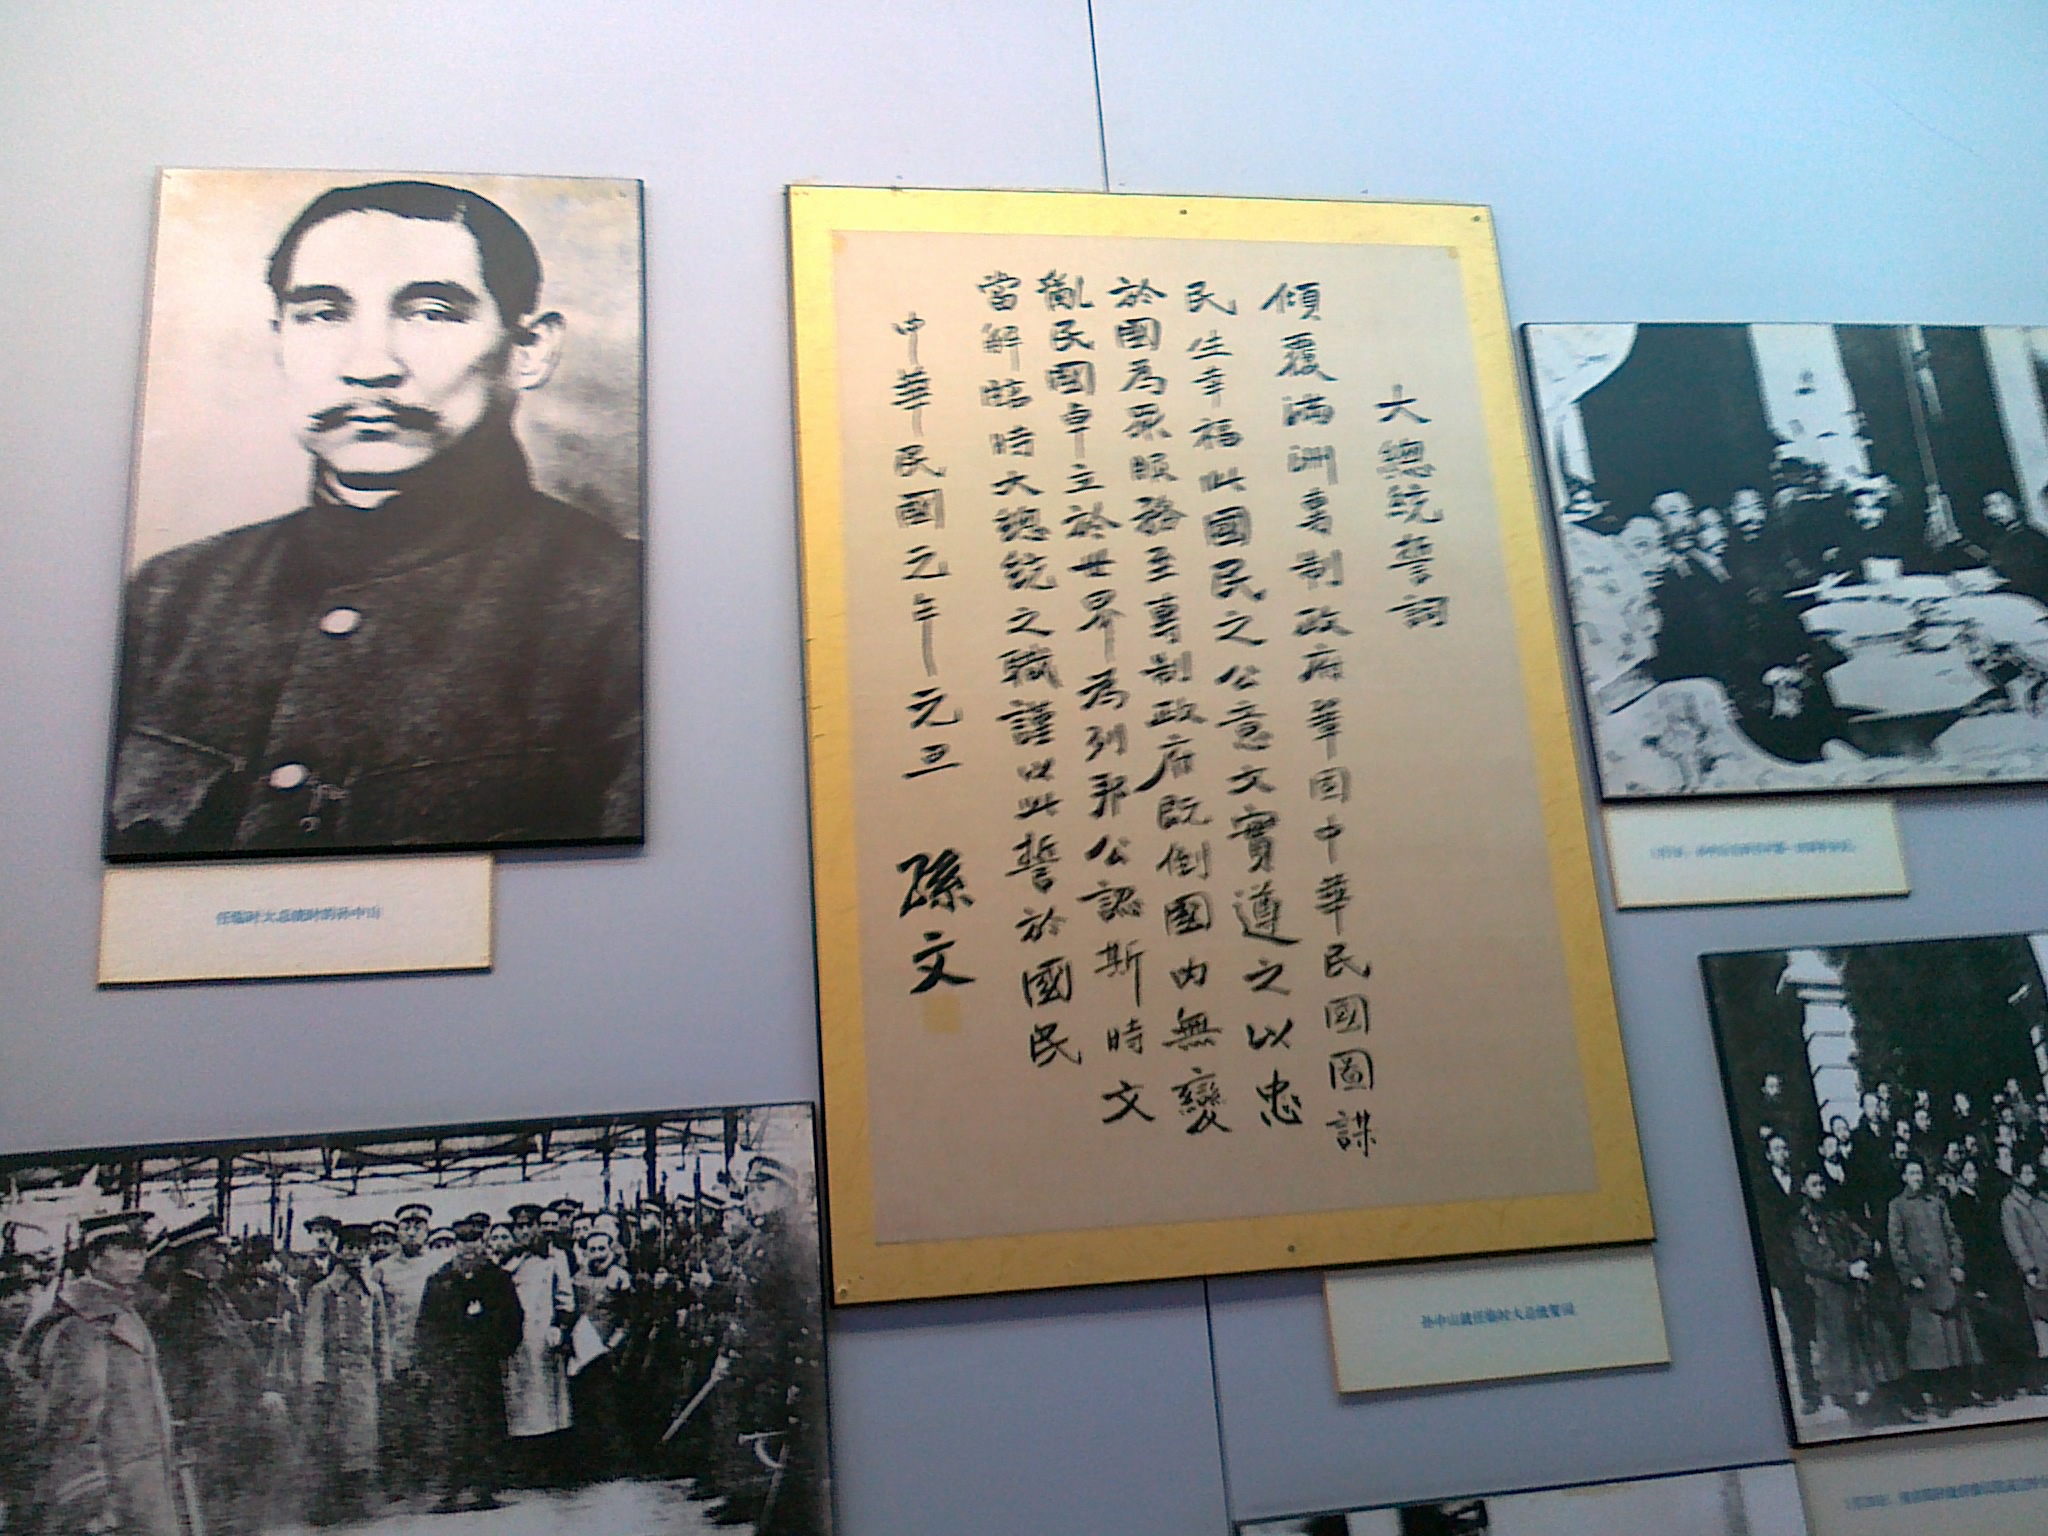 大總統誓詞
傾覆滿洲專制政府鞏固中華民國圖謀
民生幸福此國民之公意文實遵之以忠
於國為眾服務至專制政府既倒國內無變
亂民國卓立於世界為列邦公認斯時文
當解臨時大總統之職謹以此誓於國民
中華民國元年元旦
孫文
任临时大总统时的孙中山
孙中山就任临时大总统誓词